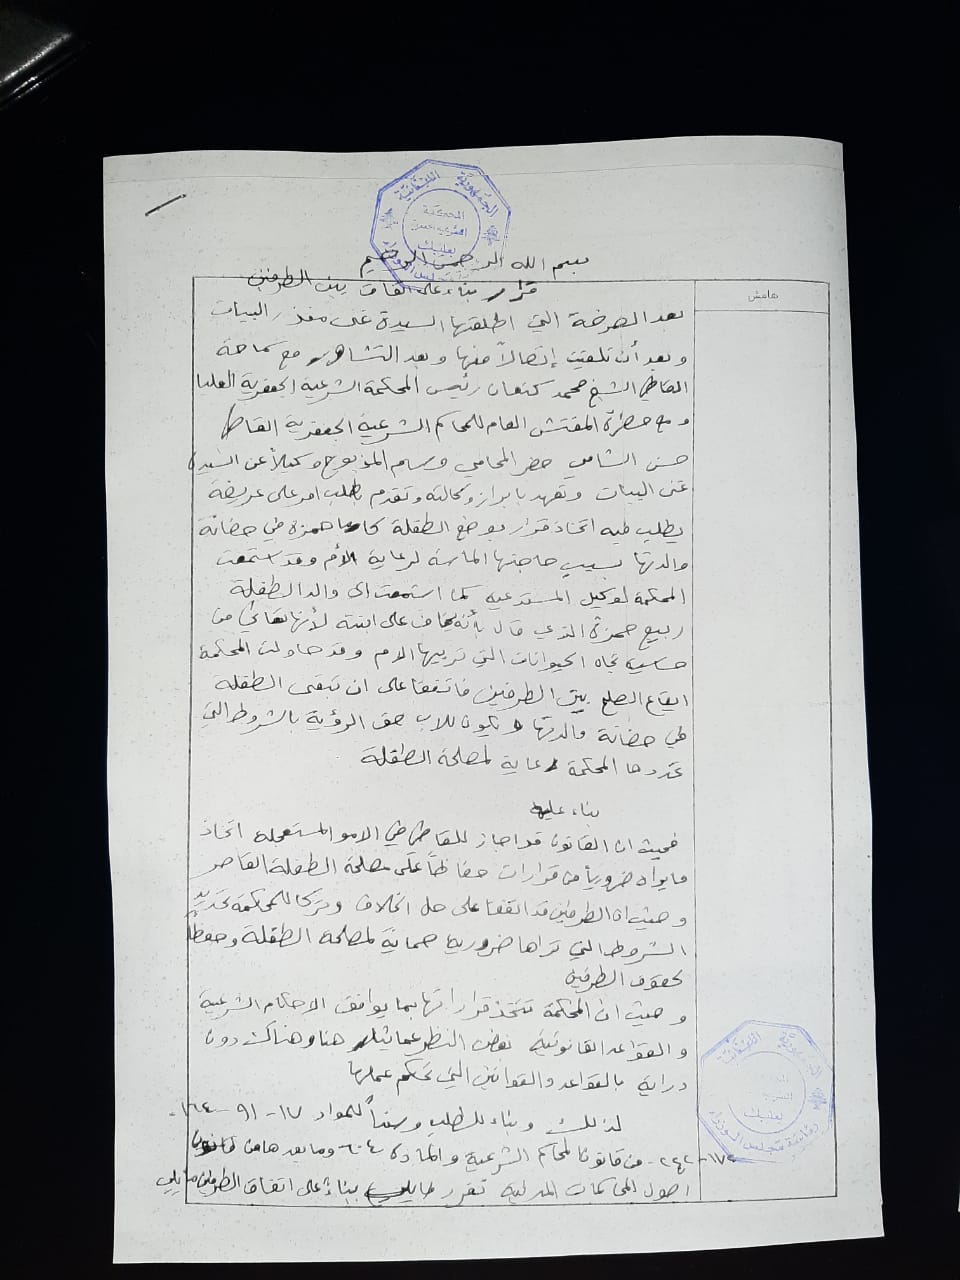 الجمهورية اللبنانية
المحكمة
الشرعية الجعفرية
بعلبك
رئاسة مجلس الوزراء
بسم الله الرحمن الرحيم
قرار بناء على اتفاق بين الطرفين
هامش
بعد الصرخة التي اطلقتها السيدة غنى منذر البيات
وبعد أن تلقيت إتصالاً منها وبعد التشاور مع سماحة
القاضي الشيخ محمد كنعان رئيس المحكمة الشرعية الجعفرية العليا
ومع حضرة المفتش العام للمحاكم الشرعية الجعفرية القاضي
حسن الشامي حضر المحامي وسام المذبوح وكيلاً عن السيدة
غنى البيات وتعهد بابراز وكالته وتقدم بطلب امر على عريضة
يطلب فيه اتخاذ قرار بوضع الطفلة كارما حمزة في حضانة
والدتها بسبب حاجتها الماسة لرعاية الأم وقد استمعت
المحكمة لوكيل المستدعية كما استمعت الى والد الطفلة
ربيع حمزة الذي قال بأنه يخاف على ابنته لأنها تعاني من
حساسية تجاه الحيوانات التي تربيها الام وقد حاولت المحكمة
ايقاع الصلح بين الطرفين فاتفقا على ان تبقى الطفلة
في حضانة والدتها ويكون للاب حق الرؤية بالشروط التي
تحددها المحكمة رعاية لمصلحة الطفلة
بناء عليه
فحيث ان القانون قد اجاز للقاضي في الامور المستعجلة اتخاذ
ما يراه ضرورياً من قرارات حفاظاً على مصلحة الطفلة القاصر
وحيث ان الطرفين قد اتفقا على حل الخلاف وتركا للمحكمة تحديد
الشروط التي تراها ضرورية حماية لمصلحة الطفلة وحفظاً
لحقوق الطرفين
وحيث ان المحكمة تتخذ قراراتها بما يوافق الاحكام الشرعية
والقواعد القانونية بغض النظر عما يثار هنا وهناك دون
دراية بالقواعد والقوانين التي تحكم عملها
لذلك وبناء للطلب وسنداً للمواد ١٧-٩١-١٦٤-
١٧٢-٢٤٢- من قانون المحاكم الشرعية والمادة ٦٠٤ وما بعدها من قانون
اصول المحاكمات المدنية تقرر بناء على اتفاق الطرفين ما يلي
الجمهورية اللبنانية
بعلبك
رئاسة مجلس الوزراء